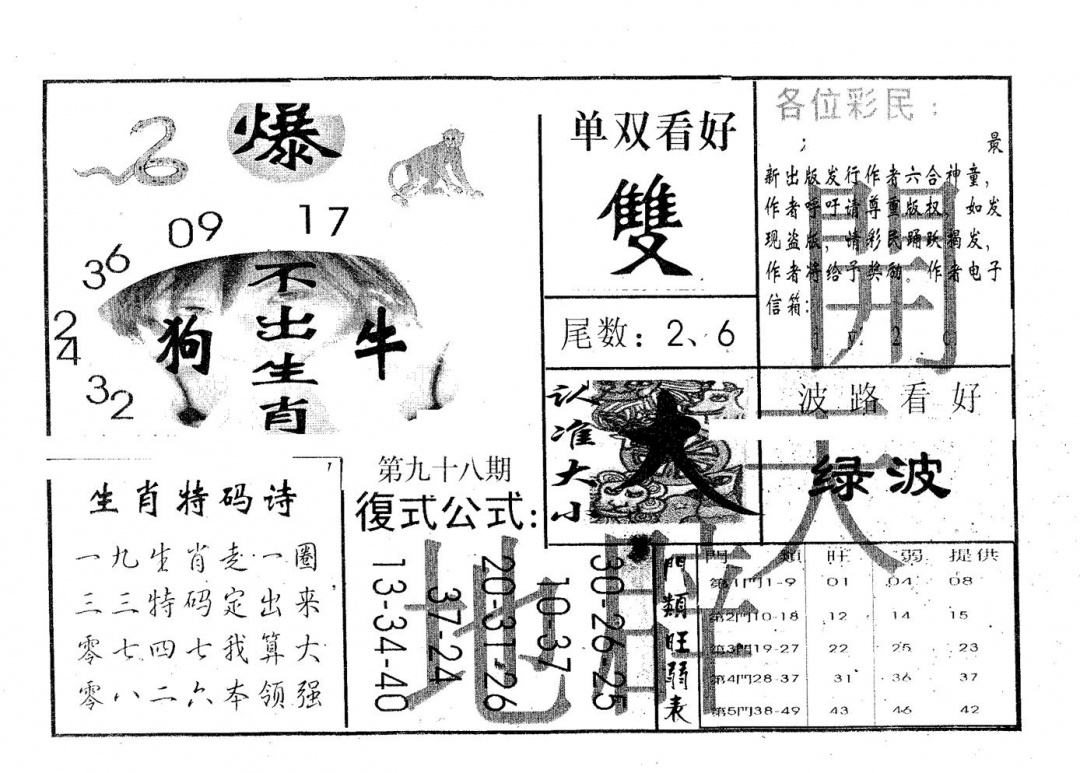 爆
09
17
36
24
32
不出生肖
狗
牛
单双看好
雙
尾数：2、6
各位彩民：
最
新出版发行作者六合神童，
作者呼吁请尊重版权，如发
现盗版，情彩民踊跃揭发，
作者将给予奖励。作者电子
信箱：
認准大小
大
波路看好
绿波
開
天
地
生肖特码诗
一九生肖走一圈
三三特码定出来
零七四七我算大
零八二六本领强
第九十八期
復式公式：
30-26-25
10-37
20-31-26
37-24
13-34-40
門類旺弱表
門 類 旺 弱 提供
第1門1-9 01 04 08
第2門10-18 12 14 15
第3門19-27 22 25 23
第4門28-37 31 36 37
第5門38-49 43 46 42